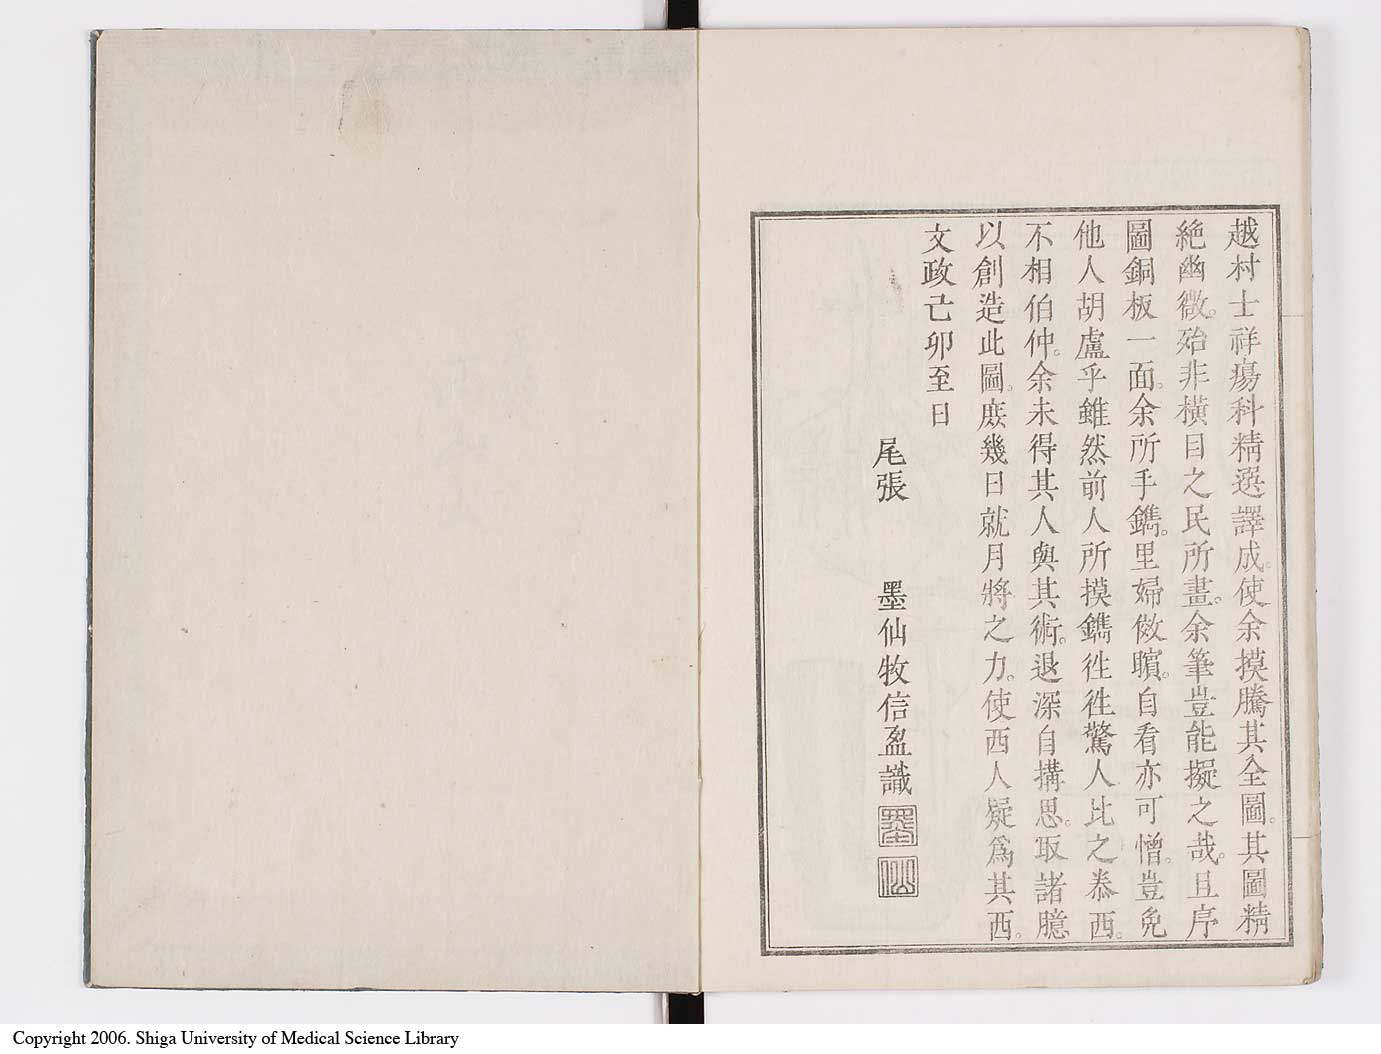 越村士祥瘍科精選譯成。使余摸騰其全圖。其圖精
絶幽微。殆非橫目之民所畫。余筆豈能擬之哉。且序
圖銅板一面。余所手鐫。里婦傚矉。自看亦可憎。豈免
他人胡盧乎雖然前人所摸鐫徃徃驚人比之泰西。
不相伯仲。余未得其人與其術。退深自搆思。取諸臆
以創造此圖。庶幾日就月將之力。使西人疑爲其西。
文政己卯至日
尾張 墨仙牧信盈識
墨仙
Copyright 2006. Shiga University of Medical Science Library